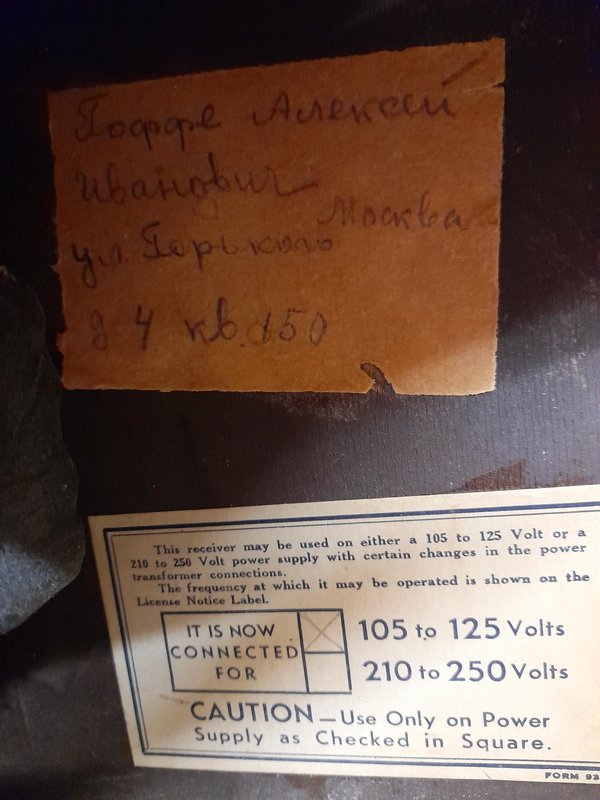 Гоффе Алексей
Иванович
Москва
ул. Горького
д 4 кв. 150
This receiver may be used on either a 105 to 125 Volt or a
210 to 250 Volt power supply with certain changes in the power
transformer connections.
The frequency at which it may be operated is shown on the
License Notice Label.
IT IS NOW
CONNECTED
FOR
105 to 125 Volts
210 to 250 Volts
CAUTION — Use Only on Power
Supply as Checked in Square.
FORM 93